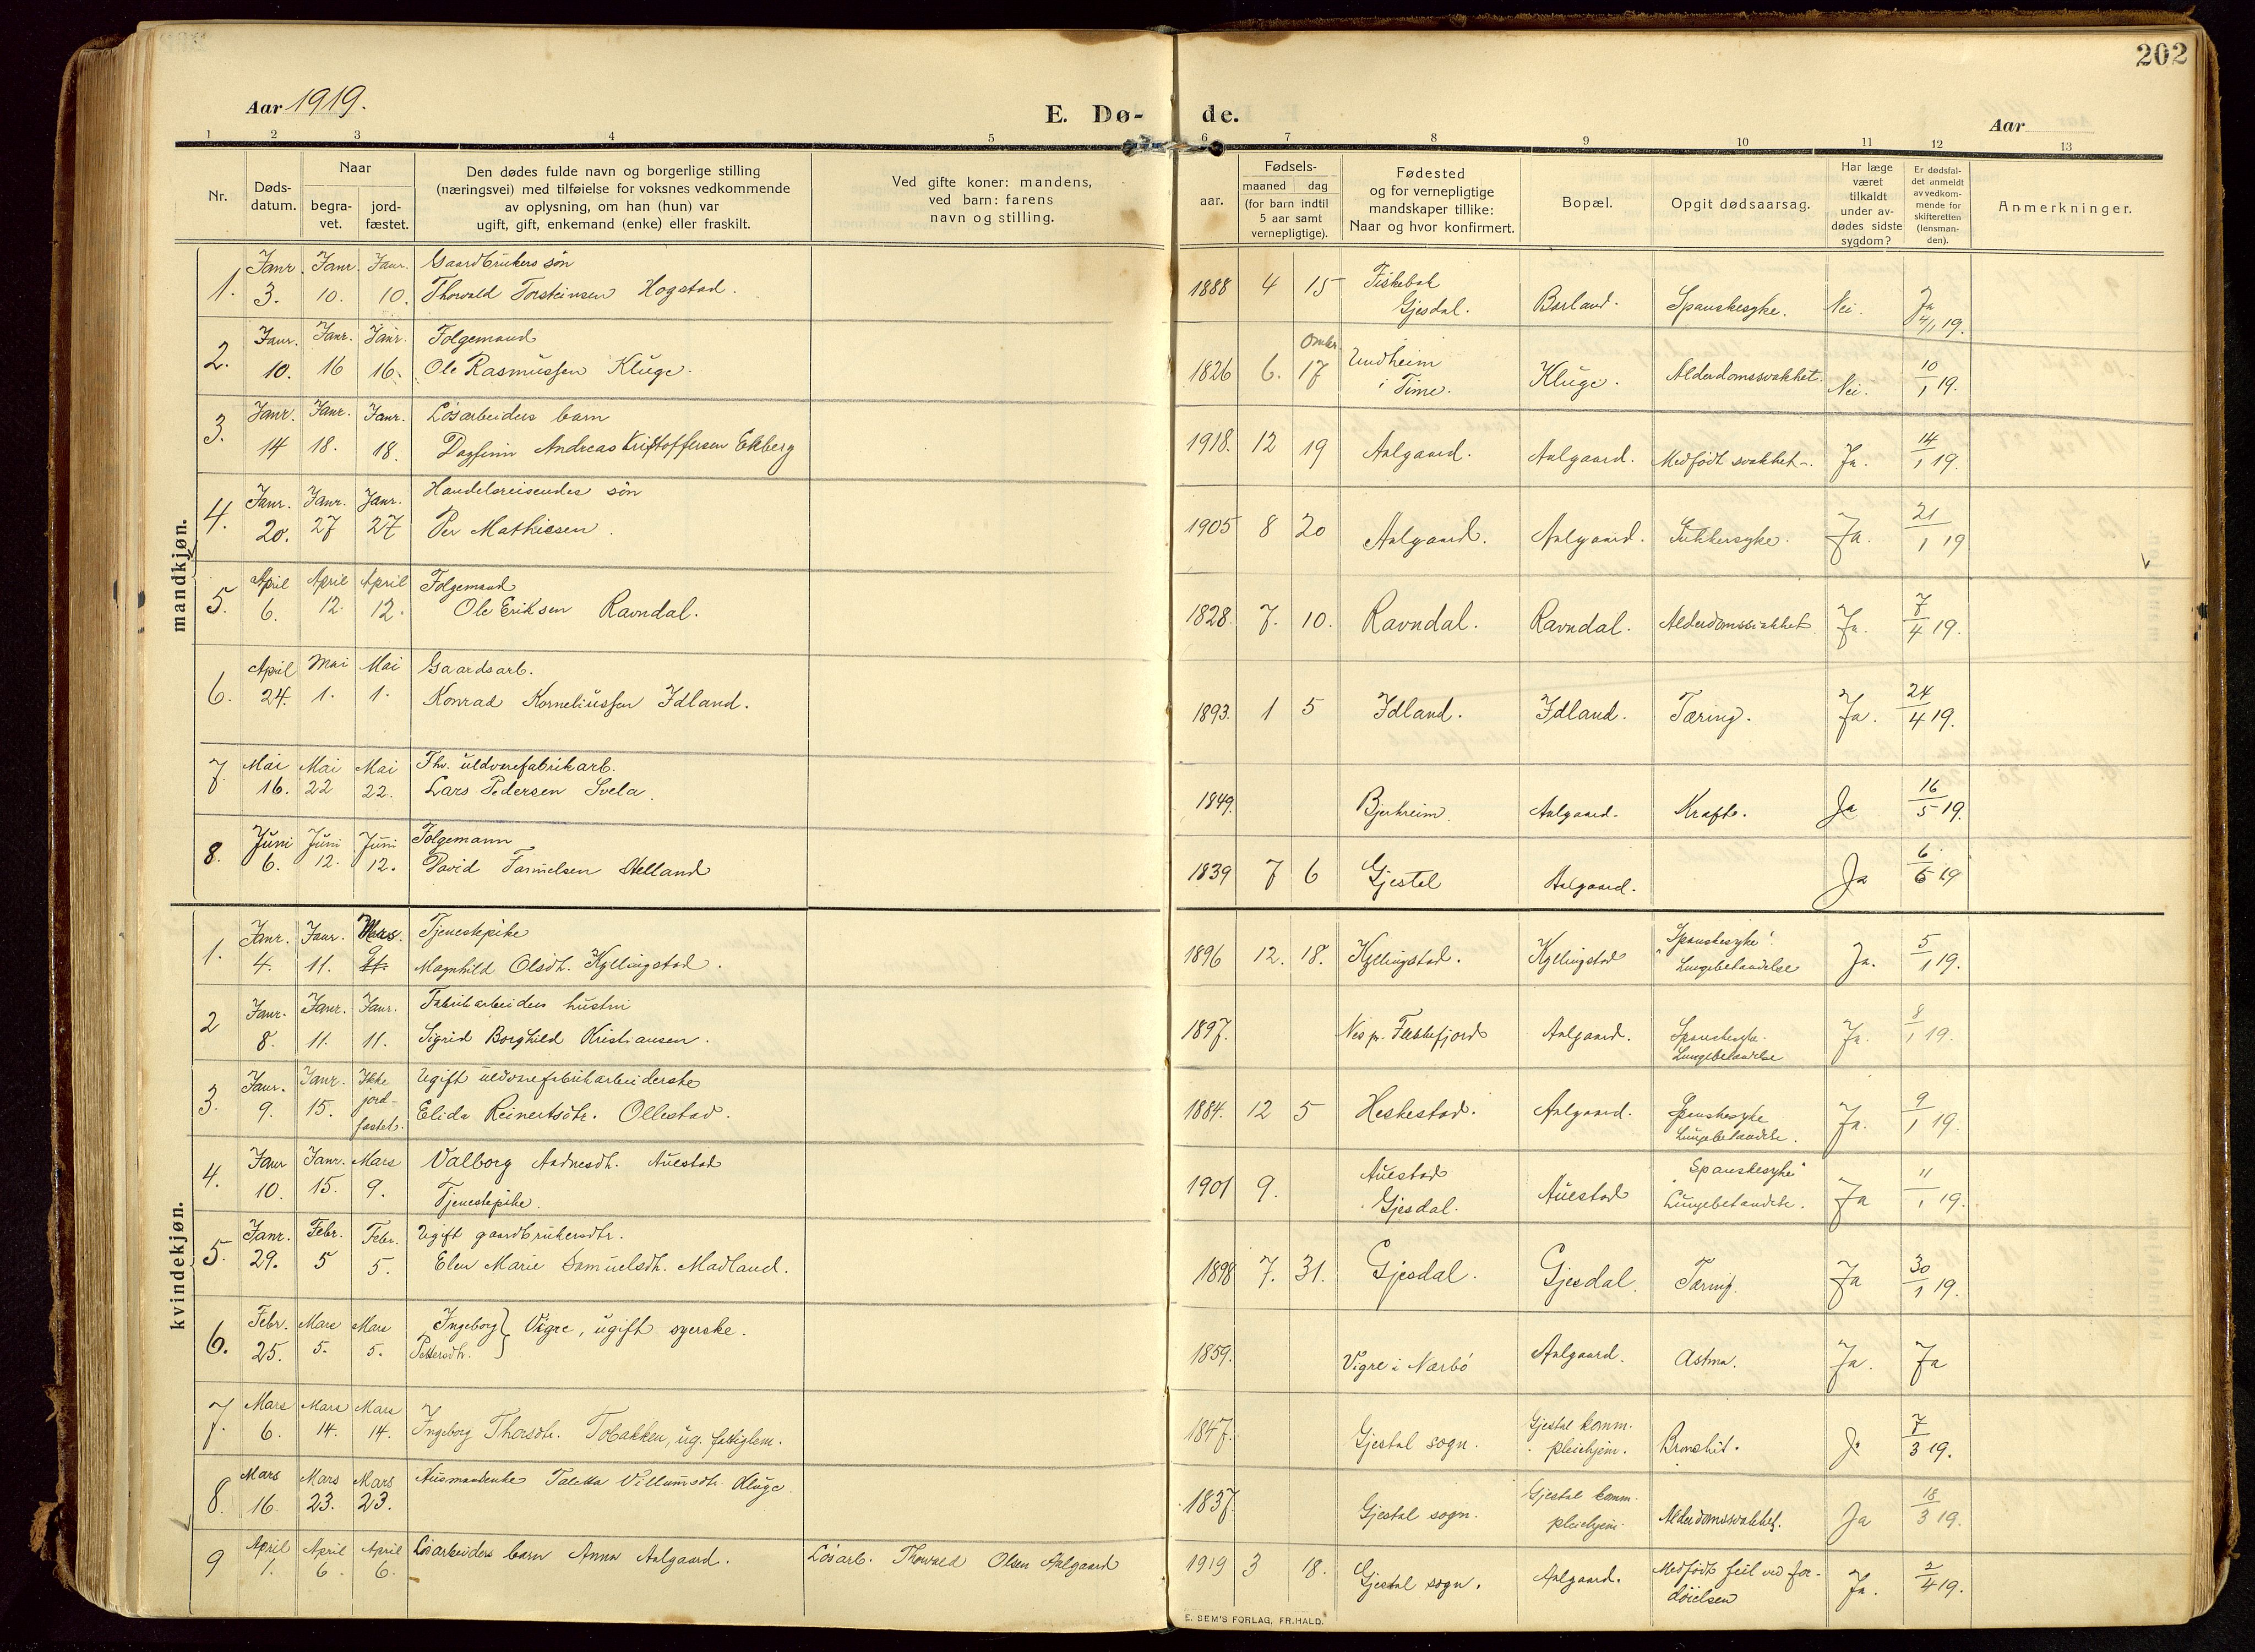 202
Aar 1919.
E. Dø- de.
Aar
1 2 3 4 5 6 7 8 9 10 11 12 13
Nr.
Døds-
datum.
Naar
begra-
vet.
jord-
fæstet.
Den dødes fulde navn og borgerlige stilling
(næringsvei) med tilføielse for voksnes vedkommende
av oplysning, om han (hun) var
ugift, gift, enkemand (enke) eller fraskilt.
Ved gifte koner: mandens,
ved barn: farens
navn og stilling.
aar.
Fødsels-
maaned dag
(for barn indtil
5 aar samt
vernepligtige).
Fødested
og for vernepligtige
mandskaper tillike:
Naar og hvor konfirmert.
Bopæl.
Opgit dødsaarsag.
Har læge
været
tilkaldt
under av-
dødes sidste
sygdom?
Er dødsfal-
det anmeldt
av vedkom-
mende for
skifteretten
(lensman-
den).
Anmerkninger.
mandkjøn.
1. Janr. 3. Janr. 10. Janr. 10. Gaardbrukers søn
Thorvald Torsteinsen Hogstad. 1888 4 15 Fiskebæk
Gjesdal. Børland. Spanskesyke. Nei. Ja 4/1 19.
2. Janr. 10. Janr. 16 Janr. 16. Folgemand
Ole Rasmussen Kluge. 1826 6. 17 Undheim
i Time. Kluge. Alderdomssvakhet. Nei. 10/1 19.
3. Janr. 14 Janr. 18. Janr. 18. Løsarbeiders barn
Dagfinn Andreas Kristoffersen Ekberg 1918. 12 19 Aalgaard. Aalgaard. Medfødt svakhet. Ja. 14/1 19.
4. Janr. 20. Janr. 27 Janr. 27 Handelsreisendes søn
Per Mathiesen. 1905 8 20 Aalgaard. Aalgaard. Sukkersyke. Ja. 21/1 19
5. April 6. April 12. April 12. Folgemand
Ole Eriksen Ravndal. 1828. 7. 10. Ravndal. Ravndal. Alderdomssvakhet Ja. 7/4 19.
6. April 24. Mai 1. Mai 1. Gaardsarb.
Konrad Korneliussen Idland. 1893. 1 5 Idland. Idland. Tæring. Ja. 24/4 19.
7. Mai 16. Mai 22 Mai 22. Fhv. uldvarefabrikarb.
Lars Pedersen Svela. 1849. Bjerkreim. Aalgaard. Kræft. Ja 16/5 19.
8. Juni 6. Juni 12. Juni 12. Folgemann
David Helland 1839 7 6 Gjestal Aalgaard. Ja 6/6 19
kvindekjøn.
1. Janr. 4. Janr. 11. Mars. 9. Tjenestepike
Magnhild Olsdt. Kyllingstad. 1896 12. 18. Kyllingstad. Kyllingstad "Spanskesyke".
Lungebetændelse Ja. 5/1 19.
2 Janr. 8. Janr. 11. Janr. 11. Fabrikarbeiders hustru
Sigrid Borghild Kristiansen. 1897. Nes pr. Flekkefjord Aalgaard. Spanskesyke.
Lungebetændelse Ja. 8/1 19.
3. Janr. 9. Janr. 15. Ikke
jord-
fæstet. Ugift uldvarefabrikarbeiderske
Elida Reinertsdtr. Ollestad. 1884. 12 5 Heskestad. Aalgaard. Spanskesyke
Lungebetændelse. Ja. 9/1 19.
4. Janr 10. Janr. 15. Mars 9. Valborg Aadnesdt. Auestad
Tjenestepike. 1901 9. Auestad
Gjesdal. Auestad "Spanskesyke"
Lungebetændelse. Ja 11/1 19.
5. Janr. 29. Febr. 5 Febr. 5. Ugift gaardbrukersdtr.
Elen Marie Samuelsdt. Madland. 1898 7. 31. Gjesdal. Gjesdal. Tæring. Ja 30/1 19.
6. Febr. 25. Mars 5. Mars 5. Ingeborg
Pettersdt. } Vigre, ugift syerske. 1859. Vigre i Nærbø Aalgaard. Astma. Ja. Ja
7. Mars 6. Mars 14. Mars 14. Ingeborg Thorsdtr. Tobakken, ug. fattiglem. 1847. Gjestal sogn. Gjestal komm.
pleiehjem. Bronchit. Ja 7/3 19.
8. Mars 16. Mars 23. Mars 23. Husmandsenke Taletta Villumsdtr. Kluge. 1837. Gjestal sogn. Gjestal komm.
pleiehjem. Alderdomssvakhet. Ja 18/3 19.
9 April 1. April 6. April 6. Løsarbeiders barn Anna Aalgaard. Løsarb. Thorvald Olsen Aalgaard 1919 3 18. Gjestal sogn. Aalgaard. Medfødt feil ved for-
døielsen Ja. 2/4 19.
E. SEM'S FORLAG, FR.HALD.